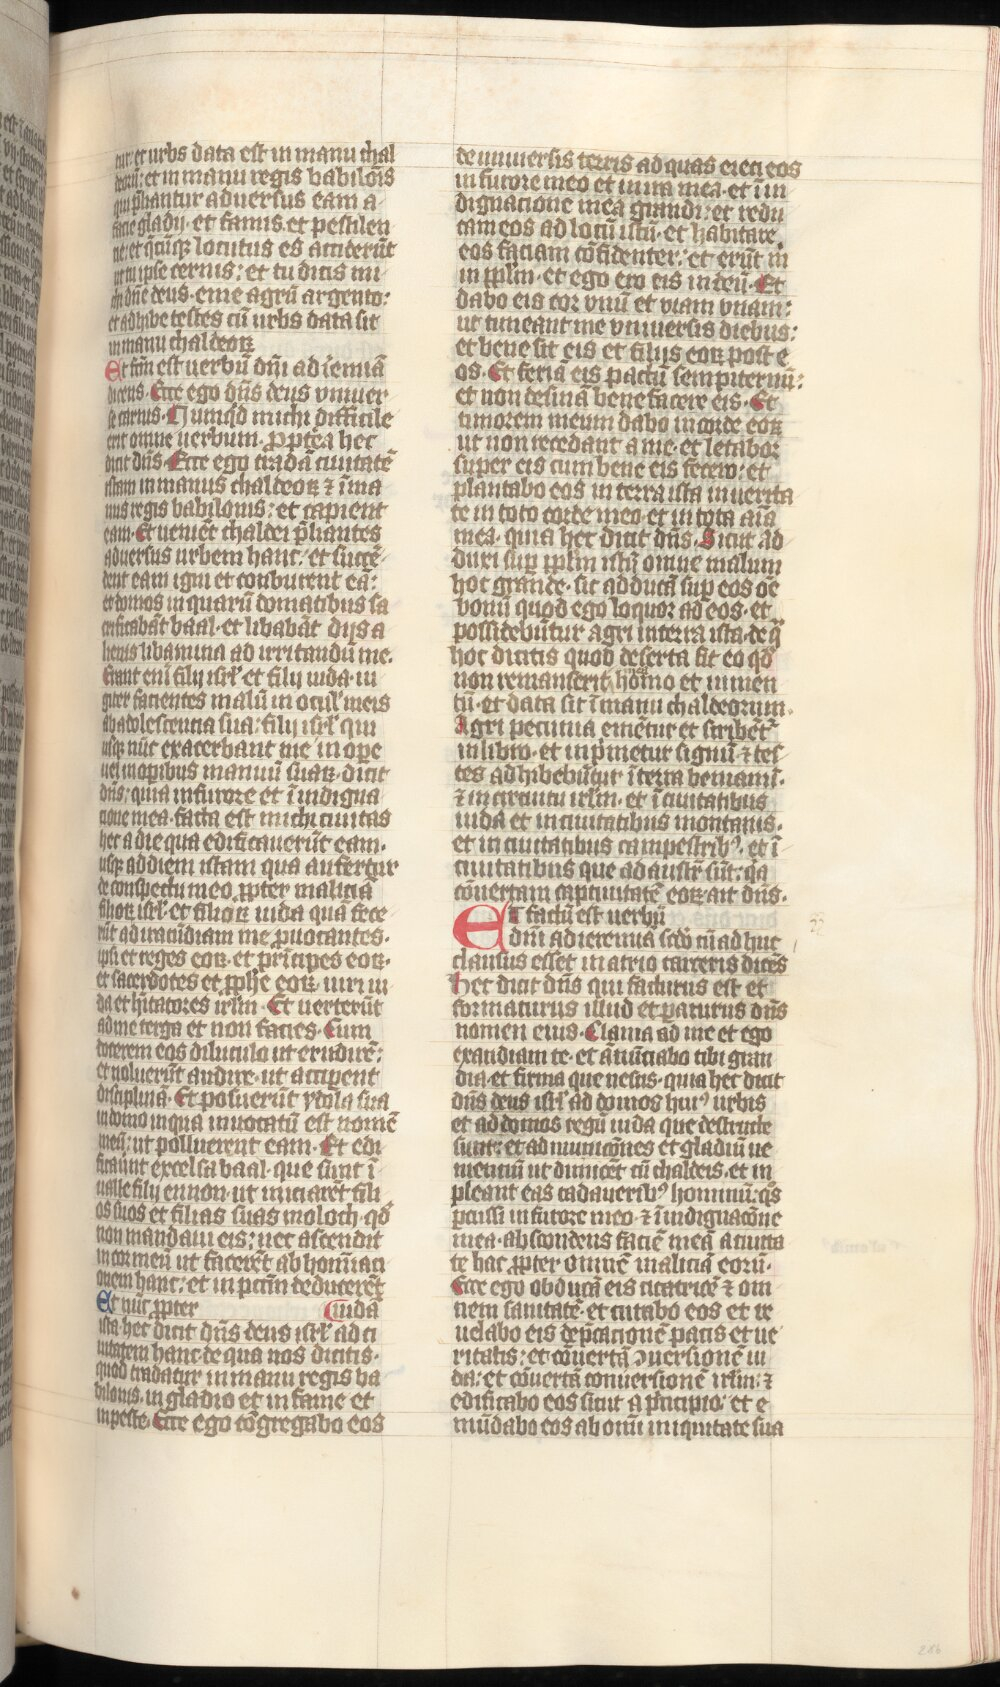 tur: et urbs data est in manu chal
deorū: et in manu regis babilōis
qui p̄liantur adversus eam a
facie gladij· et famis· et pestilen
tie: et q̄cūqꝫ locutus es acciderūt
ut tu ipse cernis: et tu dicis mi
chi dn̄e deus· eme agrū argento:
et adhibe testes cū urbs data sit
in manu chaldeoꝝ
Et fc̄m est uerbū dn̄i ad iermiā
dicens· Ecce ego dn̄s deus vniuer
se carnis· Numqd michi difficile
erit omne uerbum· ꝓpterea hec
dicit dn̄s· Ecce ego tradā ciuitatē
istam in manus chaldeoꝝ ⁊ ī ma
nus regis babilonis: et capient
eam· Et uenient chaldei p̄liantes
adversus urbem hanc: et succē
dent eam igni et conburent eā:
et domos in quarū domatibus sa
crificabāt baal· et libabāt dijs a
lienis libamina ad irritandū me·
Erant eni filij isrl̄· et filij iuda· iu
giter facientes malū in ocul̄ meis
ab adolescencia sua: filij isrl̄ qui
usqꝫ nūc exacerbant me in ope
uel in operibus manuū suaꝝ· dicit
dn̄s: quia in furore et ī indigna
cione mea· facta est michi ciuitas
hec a die qua edificauerūt eam·
usqꝫ ad diem istam qua aufertur
de conspectu meo ꝓpter maliciā
filioꝝ isrl̄· et filioꝝ iuda quā fece
rūt ad iracūdiam me ꝓuocantes·
ipsi et reges eoꝝ· et prīcipes eoꝝ·
et sacerdotes et ꝓph̄e eoꝝ· uiri iu
da et h̄itatores irl̄m· Et uerterūt
ad me terga et non facies· Cum
docerem eos diluculo ut erudirē:
et noluerūt audire· ut acciperent
disciplinā· Et posuerūt ydola sua
in domo in qua inuocatū est nomē
meū: ut polluerent eam· Et edi
ficauūt excelsa baal· que sunt ī
ualle filij ennon· ut iniciarēt fili
os suos et filias suas moloch· qd̄
non mandaui eis: nec ascendit
in cor meū ut facerēt abhominaci
onem hanc: et in pccm̄ deducerēt
Et nūc ꝓpter iuda
ista· hec dicit dn̄s deus isrl̄ ad ci
uitatem hanc· de qua nos dicitis·
quod tradatur in manu regis ba
bilonis· in gladio et in fame et
in peste· Ecce ego cōgregabo eos
de vniuersis terris ad quas eieci eos
in furore meo et in ira mea· et ī in
dignacione mea grandi: et redu
cam eos ad locū istū· et habitare
eos faciam cōfidenter: et erūt m̄
in ꝓplm̄· et ego ero eis in deū· Et
dabo eis cor vnū et viam vnam:
ut timeant me vniuersis diebus:
et bene sit eis et filijs eoꝝ post e
os· Et feriā eis pactū sempiternū:
et non desinā bene facere eis· Et
timorem meum dabo in corde eoꝝ
ut non recedant a me· et letabor
super eis cum bene eis fecero: et
plantabo eos in terra ista in uerita
te in toto corde meo· et in tota aīa
mea· quia hec dicit dn̄s· Sicut ad
duxi suꝑ ꝓplm̄ istū omne malum
hoc grande· sic adducā suꝑ eos oē
bonū quod ego loquor ad eos· et
possidebūtur agri in terra ista· de q̄
hoc dicitis quod deserta sit eo qd̄
non remanserit homo et iumen
tū· et data sit ī manu chaldeorum·
Agri pecunia emētur et scribētᷣ
in libro· et inp̄metur signū· ⁊ tes
tes adhibebūtur ī terra beniamī·
⁊ in circuitu irl̄m· et ī ciuitatibus
iuda et in ciuitatibus montanis·
et in ciuitatibus campestribꝰ· et ī
ciuitatibus que ad austrū sūt: qa
cōuertam captiuitatē eoꝝ· ait dn̄s·
Et factū est uerbū
dn̄i ad ieremiā scd̄o cū adhuc
clausus esset in atrio carceris dicēs
hec dicit dn̄s qui facturus est et
formaturus illud et paraturus dn̄s
nomen eius· Clama ad me et ego
exaudiam te· et anūciabo tibi gran
dia· et firma que nescis· quia hec dicit
dn̄s deus isrl̄ ad domos huiꝰ urbis
et ad domos regū iuda que destructe
sunt: et ad municiōnes et gladiū ue
nienciū ut dimicēt cū chaldeis· et im
pleant eas cadaueribꝰ hominū: qs̄
ꝑcussi in furore meo· ⁊ ī indignacōne
mea· abscondens faciē meā a ciuita
te hac ꝓpter omnē maliciā eorū·
Ecce ego obducā eis cicatricē ⁊ om
nem sanitatē· et curabo eos et re
uelabo eis dep̄cacionē pacis et ue
ritatis: et cōuertā ↄuersionē iu
da: et cōuertā conuersionē irl̄m: ⁊
edificabo eos sicut a p̄ncipio: et e
mūdabo eos ab om̄i iniquitate sua
33
286